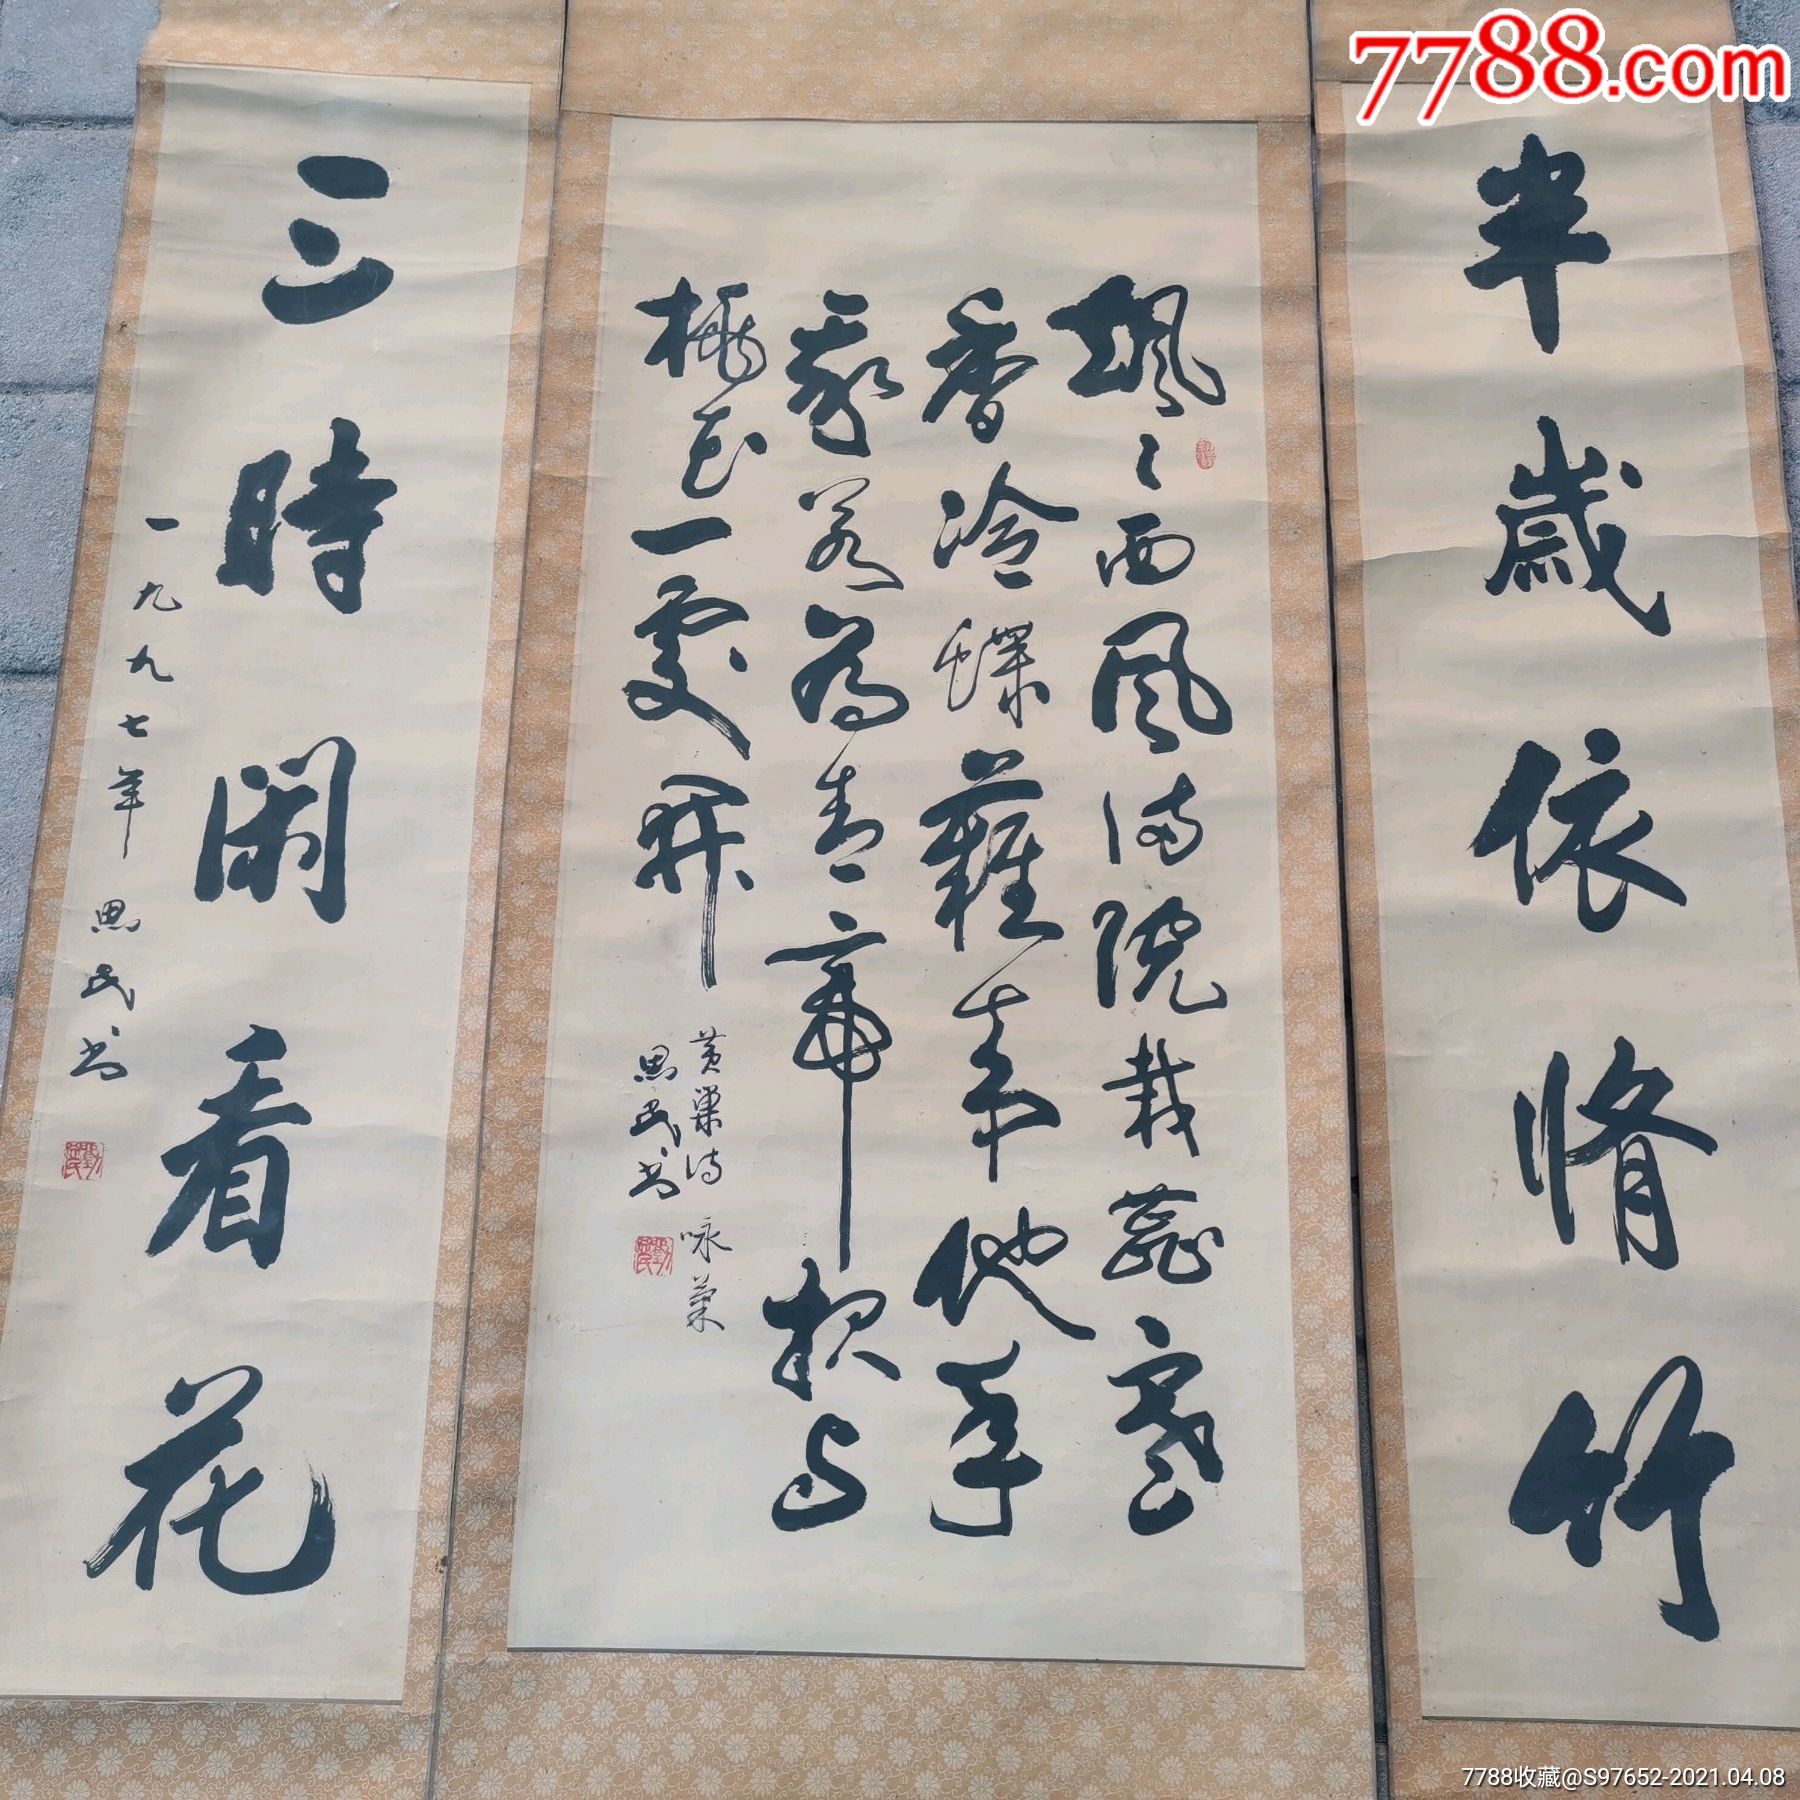 7788.com
半歲依脩竹
颯々西風满院栽蕊寒
香冷蝶難来他年
我若為青帝报与
桃花一處开
黄巢诗 咏菊
思民书
三時閑看花
一九九七年思民书
7788收藏@S97652-2021.04.08